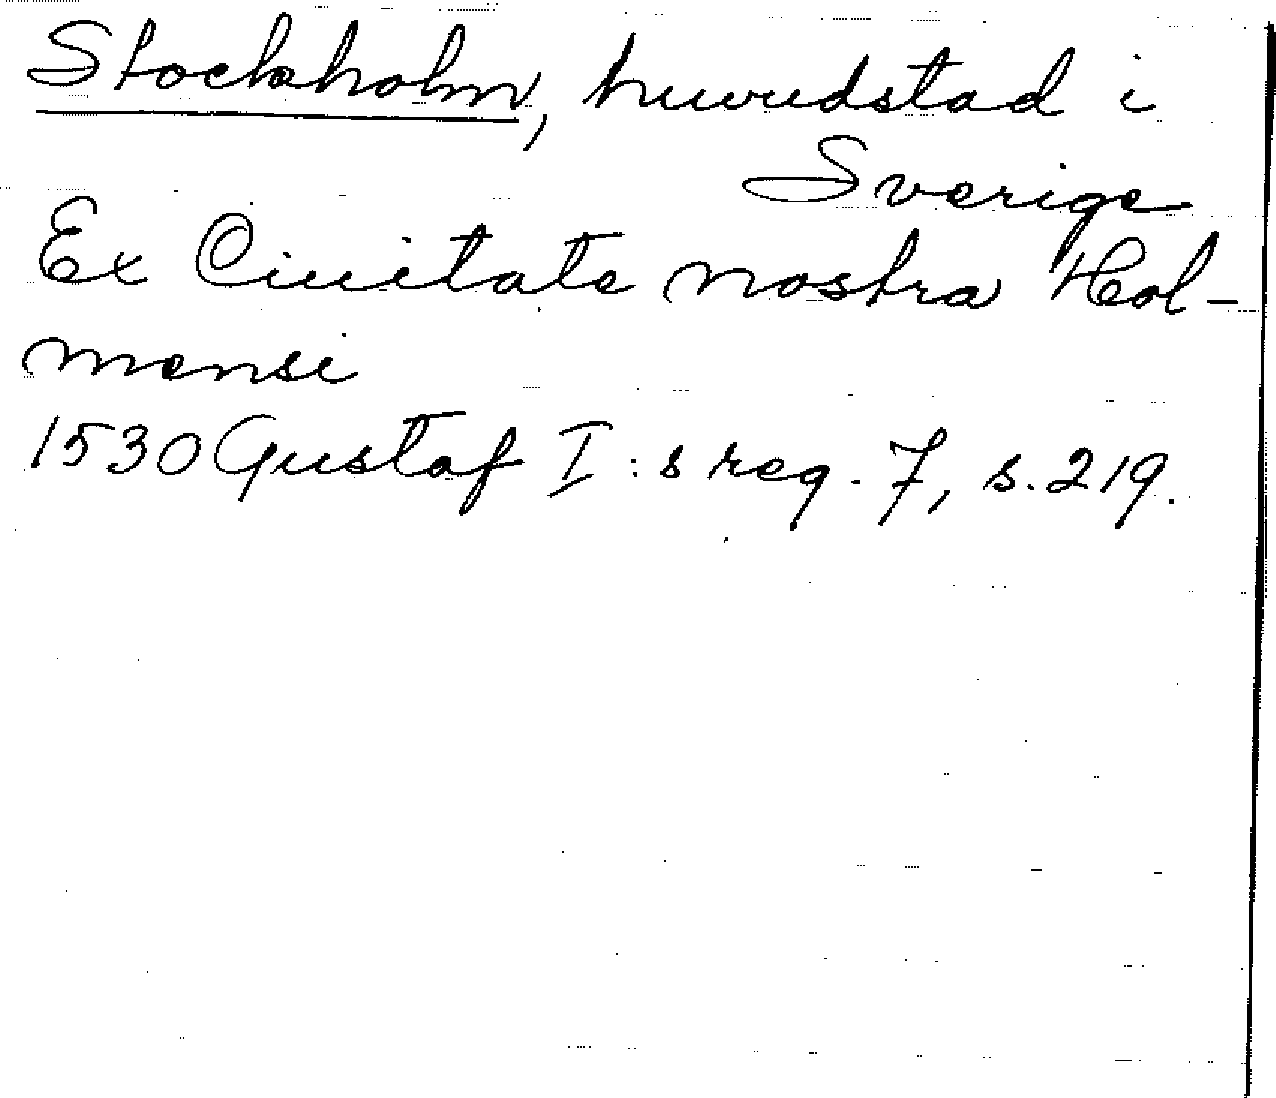 Stockholm, huvudstad i
Sverige
Ex Ciuitate nostra Hol-
mensi
1530 Gustaf I:s reg. 7, s. 219.